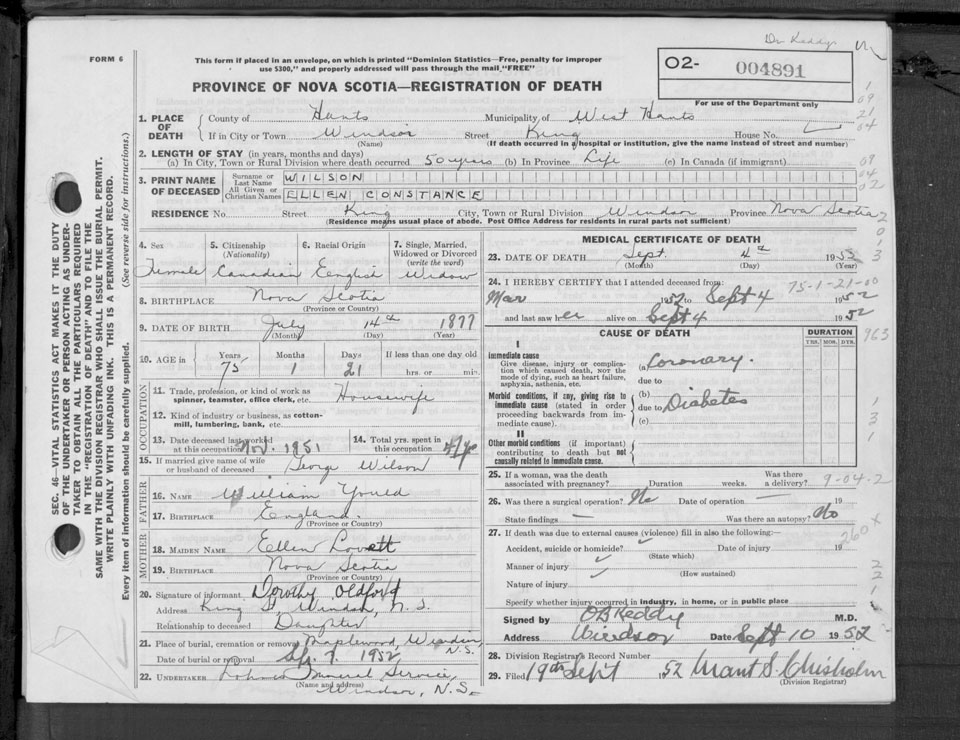 Dr Keddy
FORM 6
This form if placed in an envelope, on which is printed "Dominion Statistics—Free, penalty for improper
use $300," and properly addressed will pass through the mail "FREE"
O2- 004891
PROVINCE OF NOVA SCOTIA—REGISTRATION OF DEATH
For use of the Department only
1. PLACE OF DEATH
County of Hants Municipality of West Hants
If in City or Town Windsor Street King House No.
(Name) (If death occurred in a hospital or institution, give the name instead of street and number)
2. LENGTH OF STAY (in years, months and days)
(a) In City, Town or Rural Division where death occurred 50 years (b) In Province Life (c) In Canada (if immigrant)
3. PRINT NAME OF DECEASED
Surname or Last Name WILSON
All Given or Christian Names ELLEN CONSTANCE
RESIDENCE No. Street King City, Town or Rural Division Windsor Province Nova Scotia
(Residence means usual place of abode. Post Office Address for residents in rural parts not sufficient)
4. Sex Female
5. Citizenship (Nationality) Canadian
6. Racial Origin English
7. Single, Married, Widowed or Divorced (write the word) Widow
8. BIRTHPLACE Nova Scotia
(Province or Country)
9. DATE OF BIRTH July 14th 1877
(Month) (Day) (Year)
10. AGE in Years 75 Months 1 Days 21 If less than one day old hrs. or min.
OCCUPATION
11. Trade, profession, or kind of work as spinner, teamster, office clerk, etc. Housewife
12. Kind of industry or business, as cotton-mill, lumbering, bank, etc.
13. Date deceased last worked at this occupation Nov. 1951
14. Total yrs. spent in this occupation
15. If married give name of wife or husband of deceased George Wilson
FATHER
16. NAME William Yould
17. BIRTHPLACE England
(Province or Country)
MOTHER
18. MAIDEN NAME Ellen Lovett
19. BIRTHPLACE Nova Scotia
(Province or Country)
20. Signature of informant Dorothy Oldford
Address King St, Windsor, N.S.
Relationship to deceased Daughter
21. Place of burial, cremation or removal Maplewood, Windsor, N.S.
Date of burial or removal Sep. 7. 1952
22. UNDERTAKER Funeral Service,
(Name and address) Windsor, N.S.
MEDICAL CERTIFICATE OF DEATH
23. DATE OF DEATH Sept. 4th 1952
(Month) (Day) (Year)
24. I HEREBY CERTIFY that I attended deceased from: 75-1-21-00
Mar 1952 to Sept 4 1952
and last saw her alive on Sept 4 1952
CAUSE OF DEATH
DURATION
YRS. MOS. DYS.
963
I
Immediate cause
Give disease, injury or complication which caused death, NOT the mode of dying, such as heart failure, asphyxia, asthenia, etc.
(a) Coronary.
due to
Morbid conditions, if any, giving rise to immediate cause (stated in order proceeding backwards from immediate cause).
(b)
due to Diabetes
(c)
II
Other morbid conditions (if important) contributing to death but not causally related to immediate cause.
25. If a woman, was the death associated with pregnancy? Duration weeks. Was there a delivery? 9-04-2
26. Was there a surgical operation? No Date of operation — 19
State findings — Was there an autopsy? No
27. If death was due to external causes (violence) fill in also the following:—
Accident, suicide or homicide? Date of injury 19
(State which)
Manner of injury
(How sustained)
Nature of injury
Specify whether injury occurred in industry, in home, or in public place
Signed by OB Keddy M.D.
Address Windsor Date Sept 10 1952
28. Division Registrar's Record Number
29. Filed 19th Sept 1952 Grant S. Chisholm
(Division Registrar)
SEC. 46—VITAL STATISTICS ACT MAKES IT THE DUTY
OF THE UNDERTAKER OR PERSON ACTING AS UNDER-
TAKER TO OBTAIN ALL THE PARTICULARS REQUIRED
IN THE "REGISTRATION OF DEATH" AND TO FILE THE
SAME WITH THE DIVISION REGISTRAR WHO SHALL ISSUE THE BURIAL PERMIT.
WRITE PLAINLY WITH UNFADING INK. THIS IS A PERMANENT RECORD.
Every item of information should be carefully supplied. (See reverse side for instructions.)